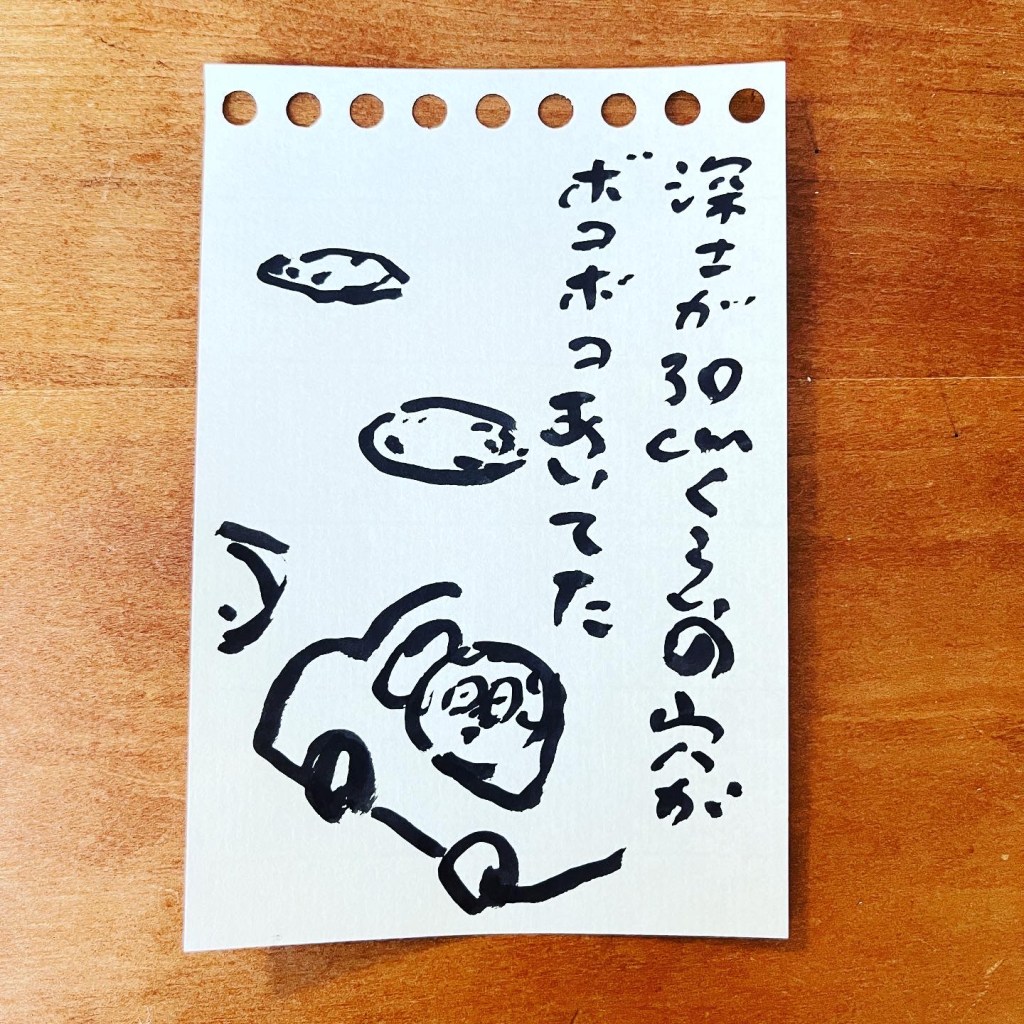 深さが30cmくらいの穴が
ボコボコあいてた